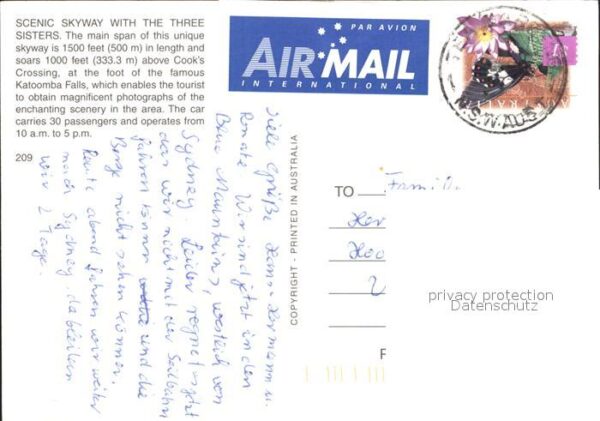 SCENIC SKYWAY WITH THE THREE
SISTERS. The main span of this unique
skyway is 1500 feet (500 m) in length and
soars 1000 feet (333.3 m) above Cook's
Crossing, at the foot of the famous
Katoomba Falls, which enables the tourist
to obtain magnificent photographs of the
enchanting scenery in the area. The car
carries 30 passengers and operates from
10 a.m. to 5 p.m.
209
PAR AVION
AIR MAIL
INTERNATIONAL
AUSTRALIA
N.S.W. AUST
COPYRIGHT - PRINTED IN AUSTRALIA
Viele Grüße Hans-Hermann u.
Renate. Wir sind jetzt in den
Blue Mountains, westlich von
Sydney. Leider regnet es jetzt
der wir nicht mit der Seilbahn
fahren können und die
Berge nicht sehen können.
Heute abend fahren wir weiter
nach Sydney. da bleiben
wir 2 Tage.
TO
Fam.
privacy protection
Datenschutz